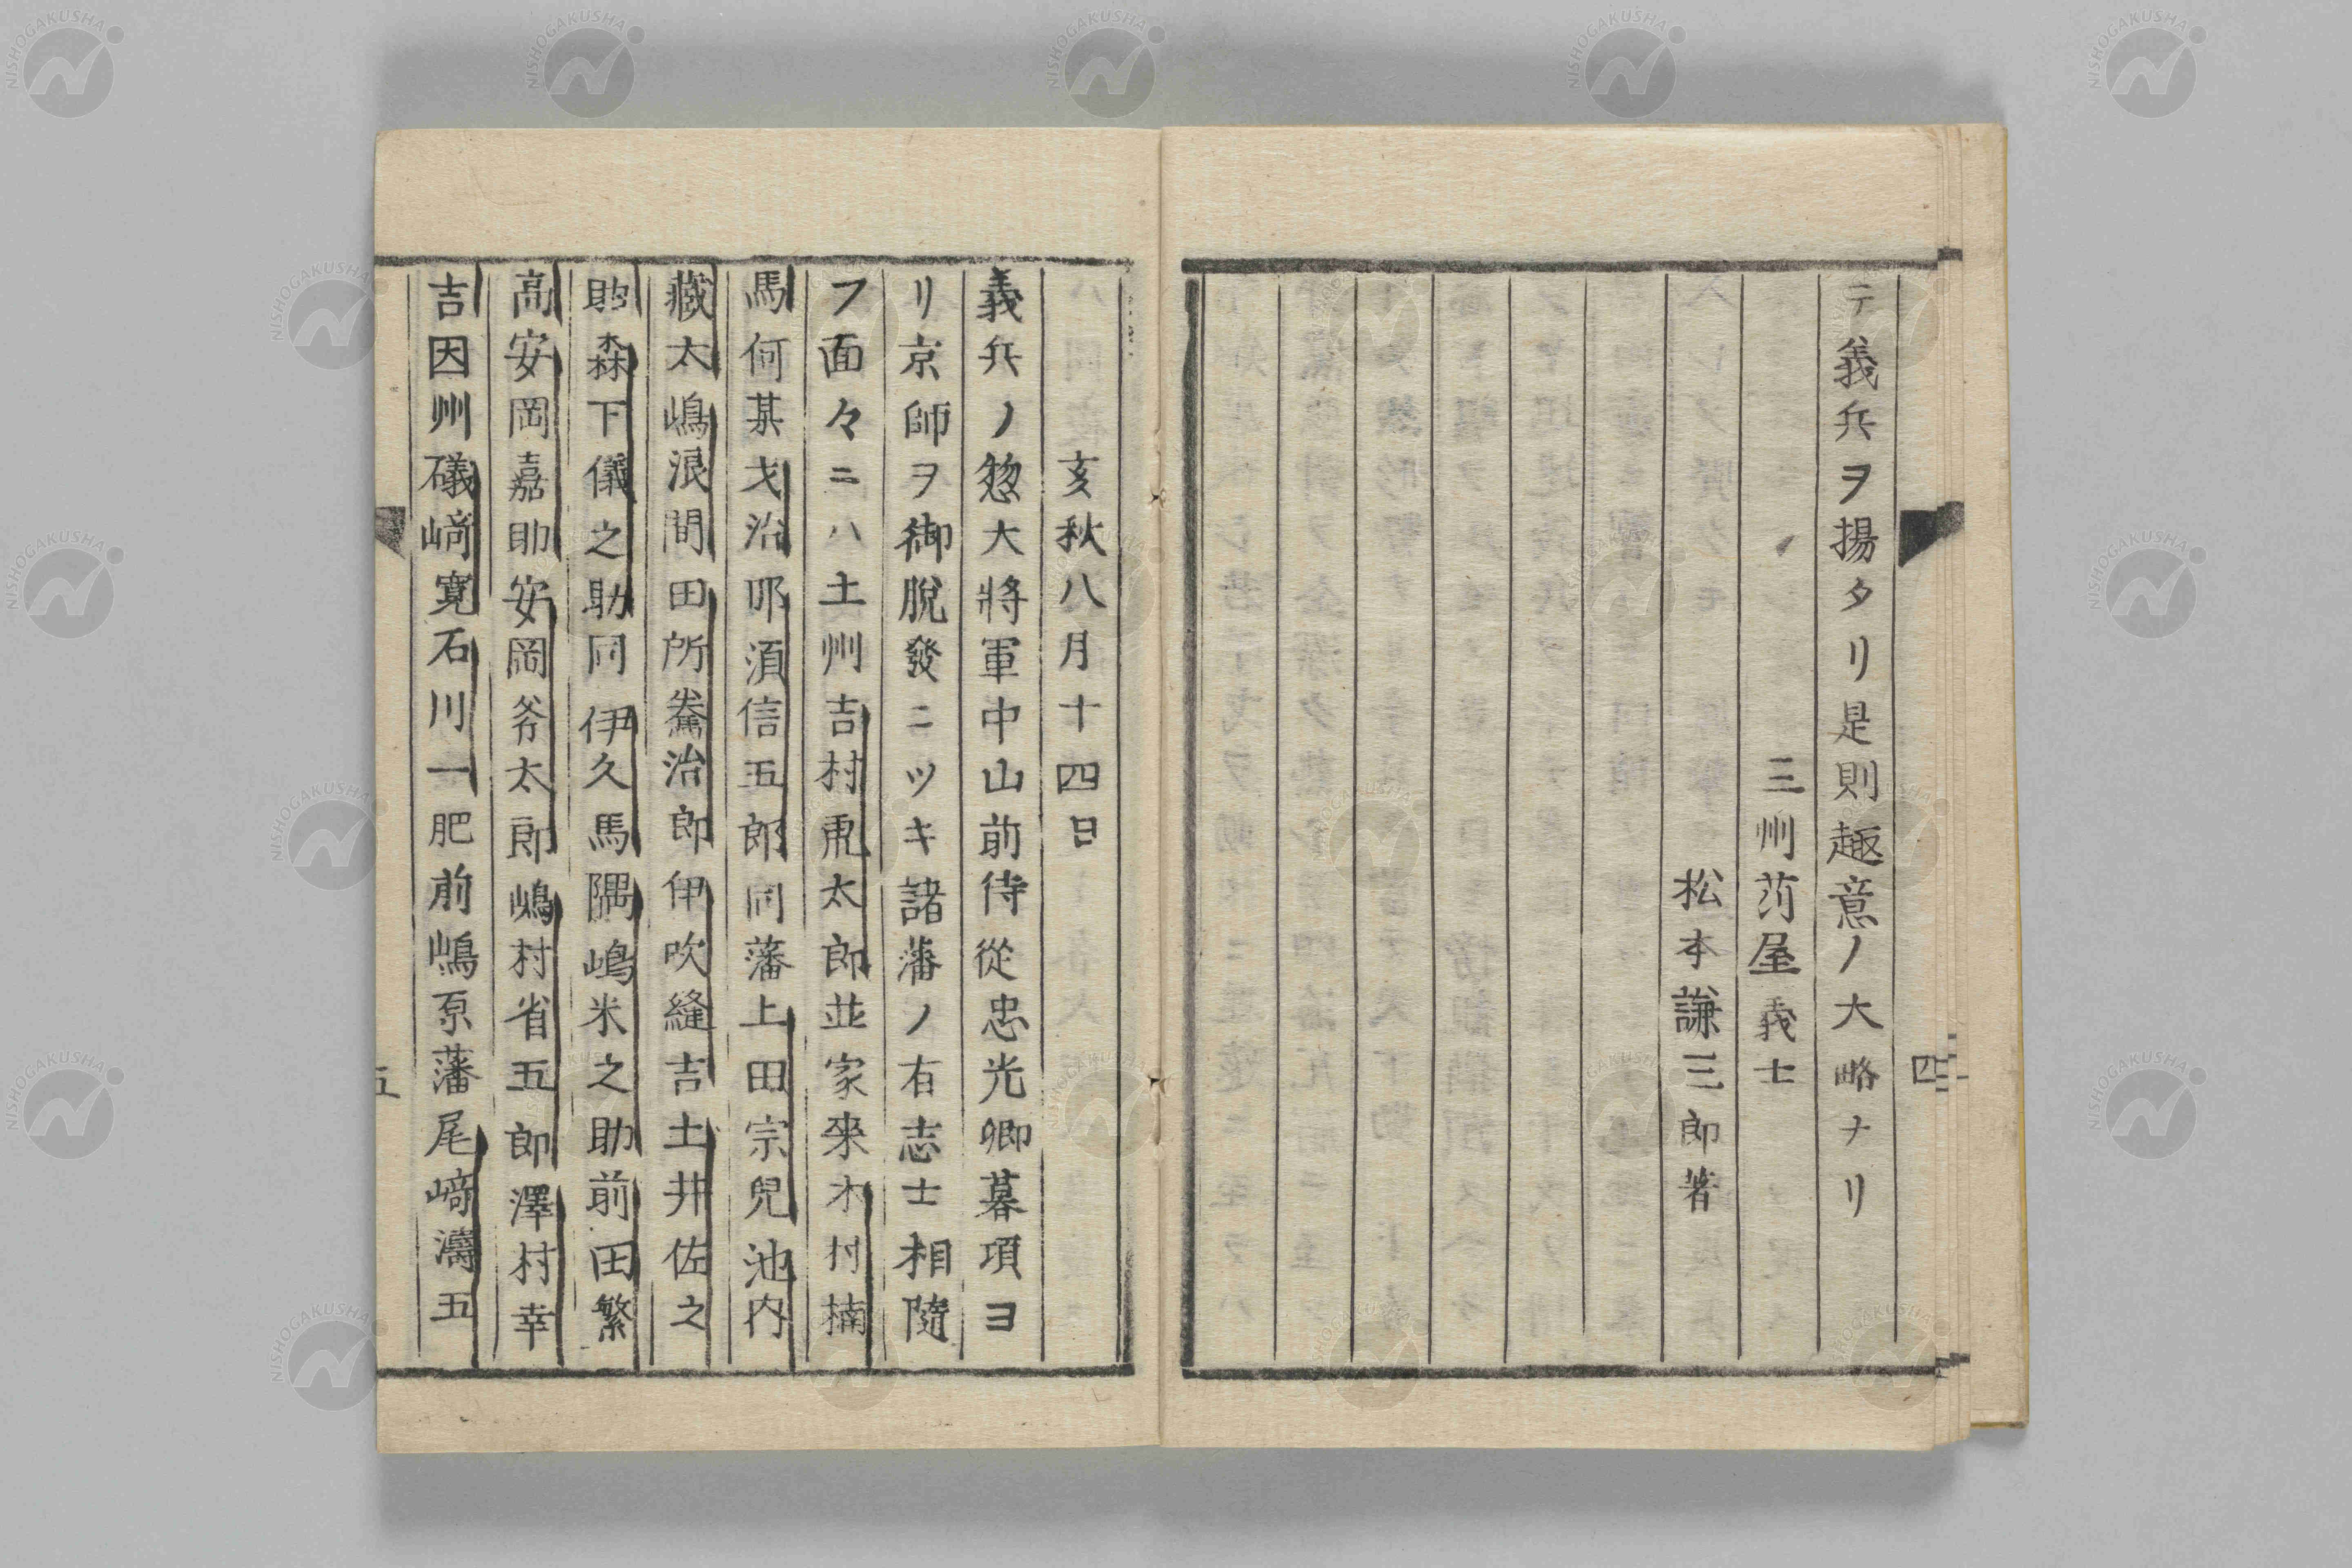 テ義兵ヲ揚タリ是則趣意ノ大略ナリ
三州苅屋義士
松本謙三郎著
四
亥秋八月十四日
義兵ノ惣大将軍中山前侍従忠光卿暮項ヨ
リ京師ヲ御脱發ニツキ諸藩ノ有志士相隨
フ面々ニハ土州吉村乕太郎並家來木村楠
馬何某戈治耶須信五郎同藩上田宗兒池内
藏太嶋浪間田所騰治郎伊吹縫吉土井佐之
助森下儀之助同伊久馬隅嶋米之助前田繁
高安岡嘉助安岡斧太郎嶋村省五郎澤村幸
吉因州礒﨑寛石川一肥前嶋原藩尾﨑濤五
五
NISHOGAKUSHA